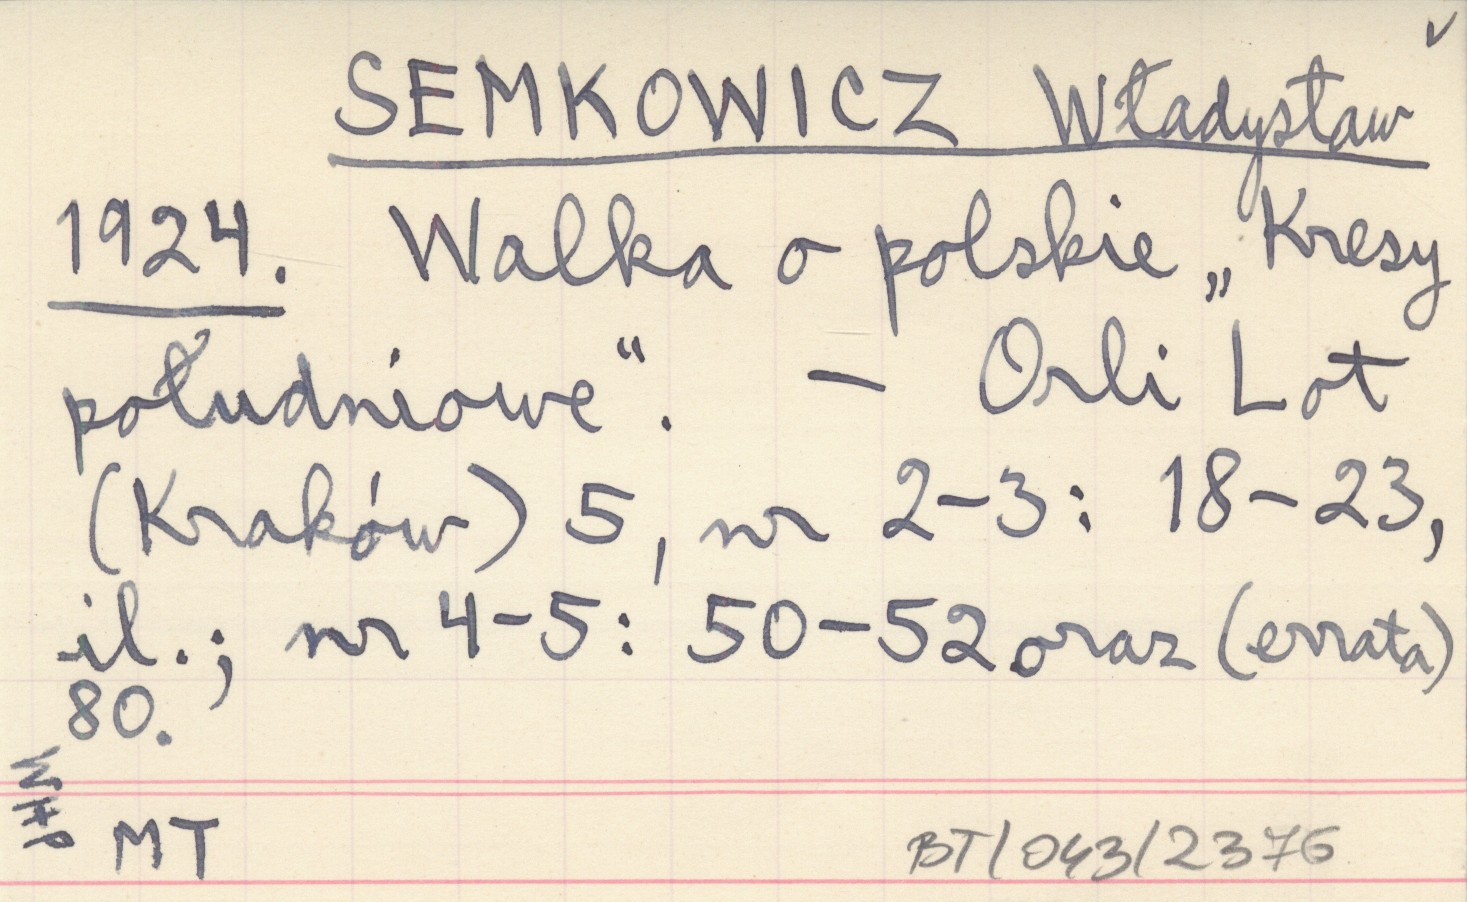 SEMKOWICZ Władysław
1924. Walka o polskie „Kresy
południowe“. – Orli Lot
(Kraków) 5, nr 2–3: 18–23,
il.; nr 4–5: 50–52 oraz (errata)
80.
WHP
MT
BT/043/2376